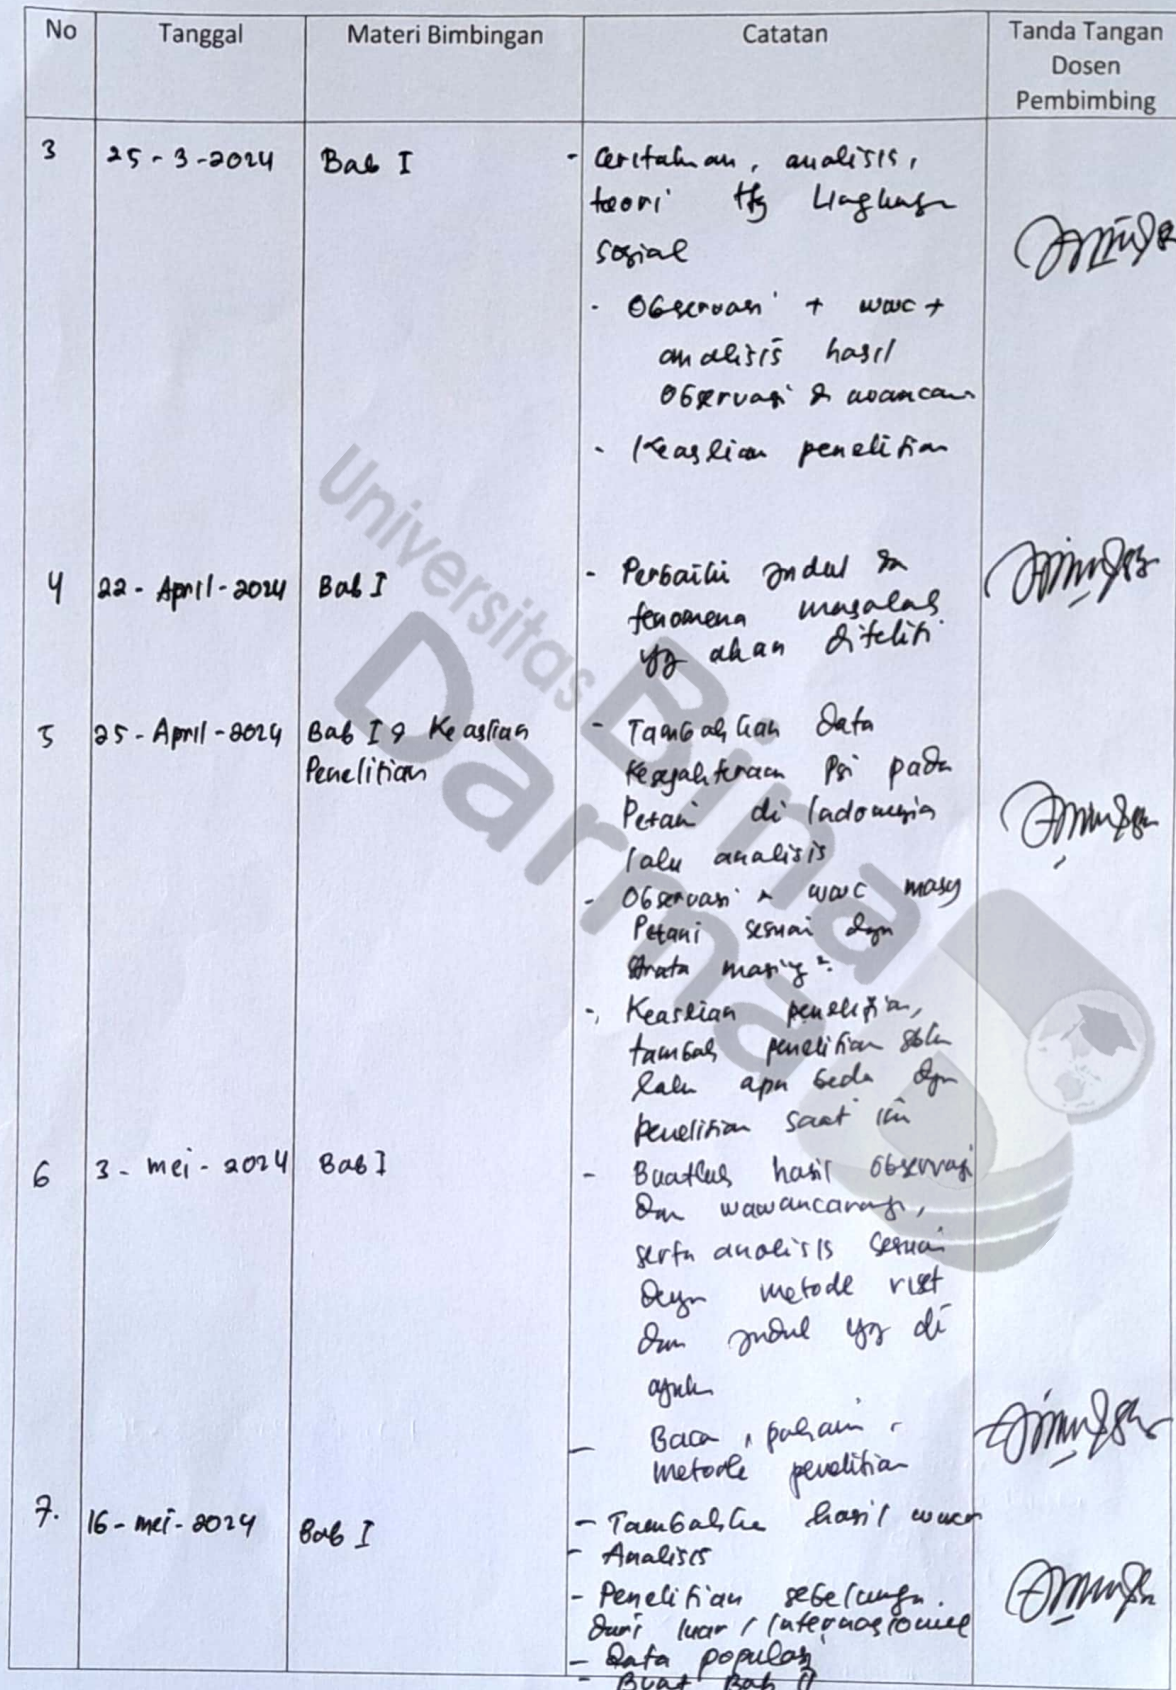 No Tanggal Materi Bimbingan Catatan Tanda Tangan
Dosen
Pembimbing
3 25 - 3 - 2024 Bab I - Ceritakan, analisis,
teori ttg Lingkungan
sosial
- Observasi + wwc +
analisis hasil
Observasi & wawancara
- Keaslian penelitian
4 22 - April - 2024 Bab I - Perbaiki judul &
fenomena masalah
yg akan diteliti
5 25 - April - 2024 Bab I & Keaslian
Penelitian
- Tambahkan data
Kesejahteraan Psi pada
Petani di Indonesia
lalu analisis
- Observasi & wwc masy
Petani sesuai dgn
strata masing²
- Keaslian penelitian,
tambah penelitian sblm
lalu apa beda dgn
penelitian saat ini
6 3 - mei - 2024 Bab I - Buatlah hasil observasi
dan wawancaranya,
serta analisis sesuai
dgn metode riset
dan judul yg di
ajukan
- Baca, pahami,
metode penelitian
7. 16 - mei - 2024 Bab I - Tambahkan hasil wwcr
- Analisis
- Penelitian sebelumnya
dari luar / Internasional
- Data populasi
- Buat Bab II
Universitas
Bina
Darma